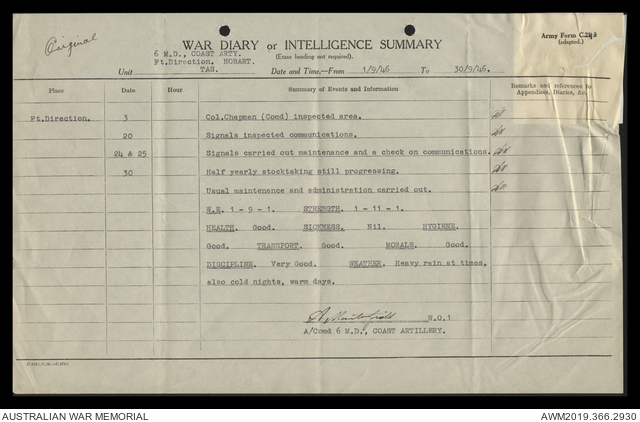 Original
WAR DIARY or INTELLIGENCE SUMMARY
(Erase heading not required).
Army Form C.
(adapted.)
6 M.D., COAST ARTY.
Ft.Direction. HOBART.
Unit TAS. Date and Time.—From 1/9/46 To 30/9/46.
Place Date Hour Summary of Events and Information Remarks and references to
Appendices, Diaries, &c.
Ft.Direction. 3 Col.Chapman (Comd) inspected area.
20 Signals inspected communications.
24 & 25 Signals carried out maintenance and a check on communications.
30 Half yearly stocktaking still progressing.
Usual maintenance and administration carried out.
W.E. 1 - 9 - 1. STRENGTH. 1 - 11 - 1.
HEALTH. Good. SICKNESS. Nil. HYGIENE.
Good. TRANSPORT. Good. MORALE. Good.
DISCIPLINE. Very Good. WEATHER. Heavy rain at times,
also cold nights, warm days.
W.O.1
A/Comd 6 M.D., COAST ARTILLERY.
AUSTRALIAN WAR MEMORIAL
AWM2019.366.2930